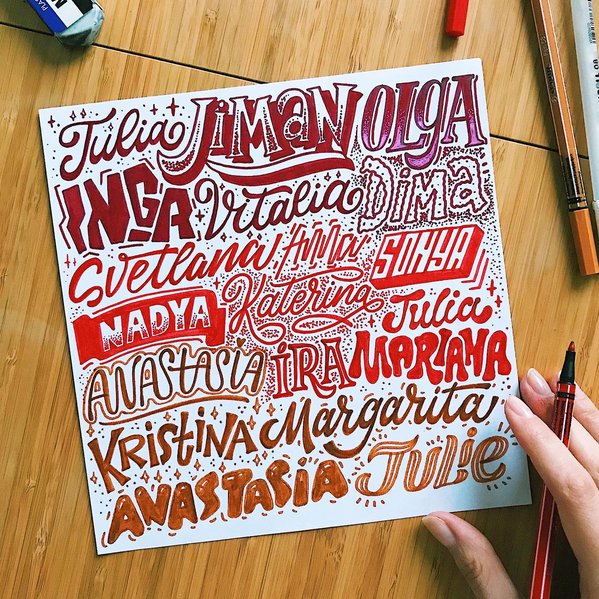 Julia Jiman OLGA
INGA Vitalia Dima
Svetlana Anna SONYA
NADYA Katerina Julia
ANASTASIA IRA MARIANA
KRISTINA Margarita
ANASTASIA Julie